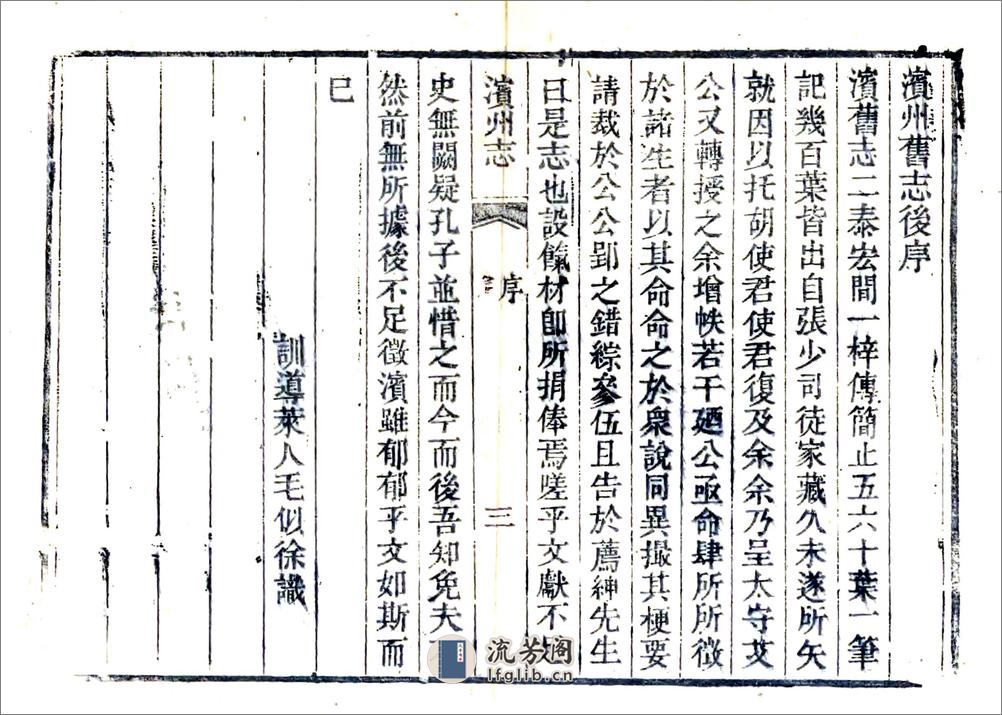 濱州舊志後序
濱舊志二泰宏間一梓傳簡止五六十葉一筆
記幾百葉皆出自張少司徒家藏久未遂所矢
就因以托胡使君使君復及余余乃呈太守艾
公又轉授之余增帙若干廼公亟命肆所所徵
於諸生者以其命命之於衆說同異撮其梗要
請裁於公公郢之錯綜參伍且告於薦紳先生
曰是志也設餼材卽所捐俸焉嗟乎文獻不
濱州志
序
三
史無闕疑孔子並惜之而今而後吾知免夫
然前無所據後不足徵濱雖郁郁乎文如斯而
已
訓導萊人毛似徐識
流芳阁
lfglib.cn